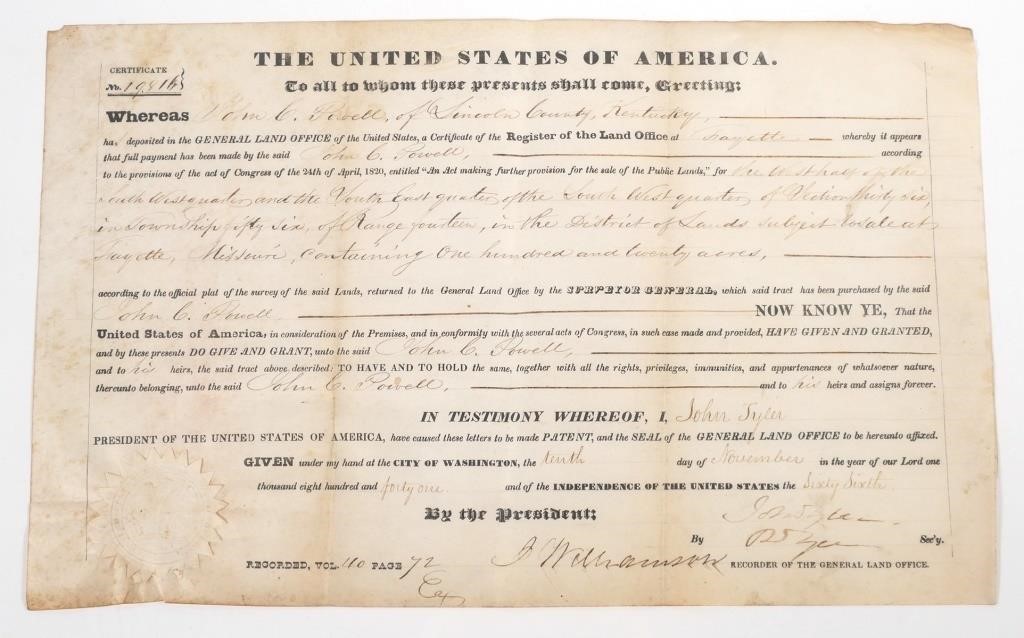 THE UNITED STATES OF AMERICA.
CERTIFICATE
No. 19,816
To all to whom these presents shall come, Greeting:
Whereas John C. Powell, of Lincoln County, Kentucky,
ha, deposited in the GENERAL LAND OFFICE of the United States, a Certificate of the Register of the Land Office at Fayette whereby it appears
that full payment has been made by the said John C. Powell, according
to the provisions of the act of Congress of the 24th of April, 1820, entitled "An Act making further provision for the sale of the Public Lands," for the West half of the
South West quarter and the South East quarter of the South West quarter, of Section thirty six,
in Township fifty six, of Range fourteen, in the District of Lands subject to sale at
Fayette, Missouri, containing One hundred and twenty acres,
according to the official plat of the survey of the said Lands, returned to the General Land Office by the SURVEYOR GENERAL, which said tract has been purchased by the said
John C. Powell. NOW KNOW YE, That the
United States of America, in consideration of the Premises, and in conformity with the several acts of Congress, in such case made and provided, HAVE GIVEN AND GRANTED,
and by these presents DO GIVE AND GRANT, unto the said John C. Powell,
and to his heirs, the said tract above described: TO HAVE AND TO HOLD the same, together with all the rights, privileges, immunities, and appurtenances of whatsoever nature,
thereunto belonging, unto the said John C. Powell, and to his heirs and assigns forever.
IN TESTIMONY WHEREOF, I, John Tyler
PRESIDENT OF THE UNITED STATES OF AMERICA, have caused these letters to be made PATENT, and the SEAL of the GENERAL LAND OFFICE to be hereunto affixed.
GIVEN under my hand at the CITY OF WASHINGTON, the tenth day of November in the year of our Lord one
thousand eight hundred and forty one. and of the INDEPENDENCE OF THE UNITED STATES the Sixty Sixth
By the President: John Tyler
By R Tyler Sec'y.
RECORDED, VOL. 40 PAGE 72 J Williamson RECORDER OF THE GENERAL LAND OFFICE.
Ex